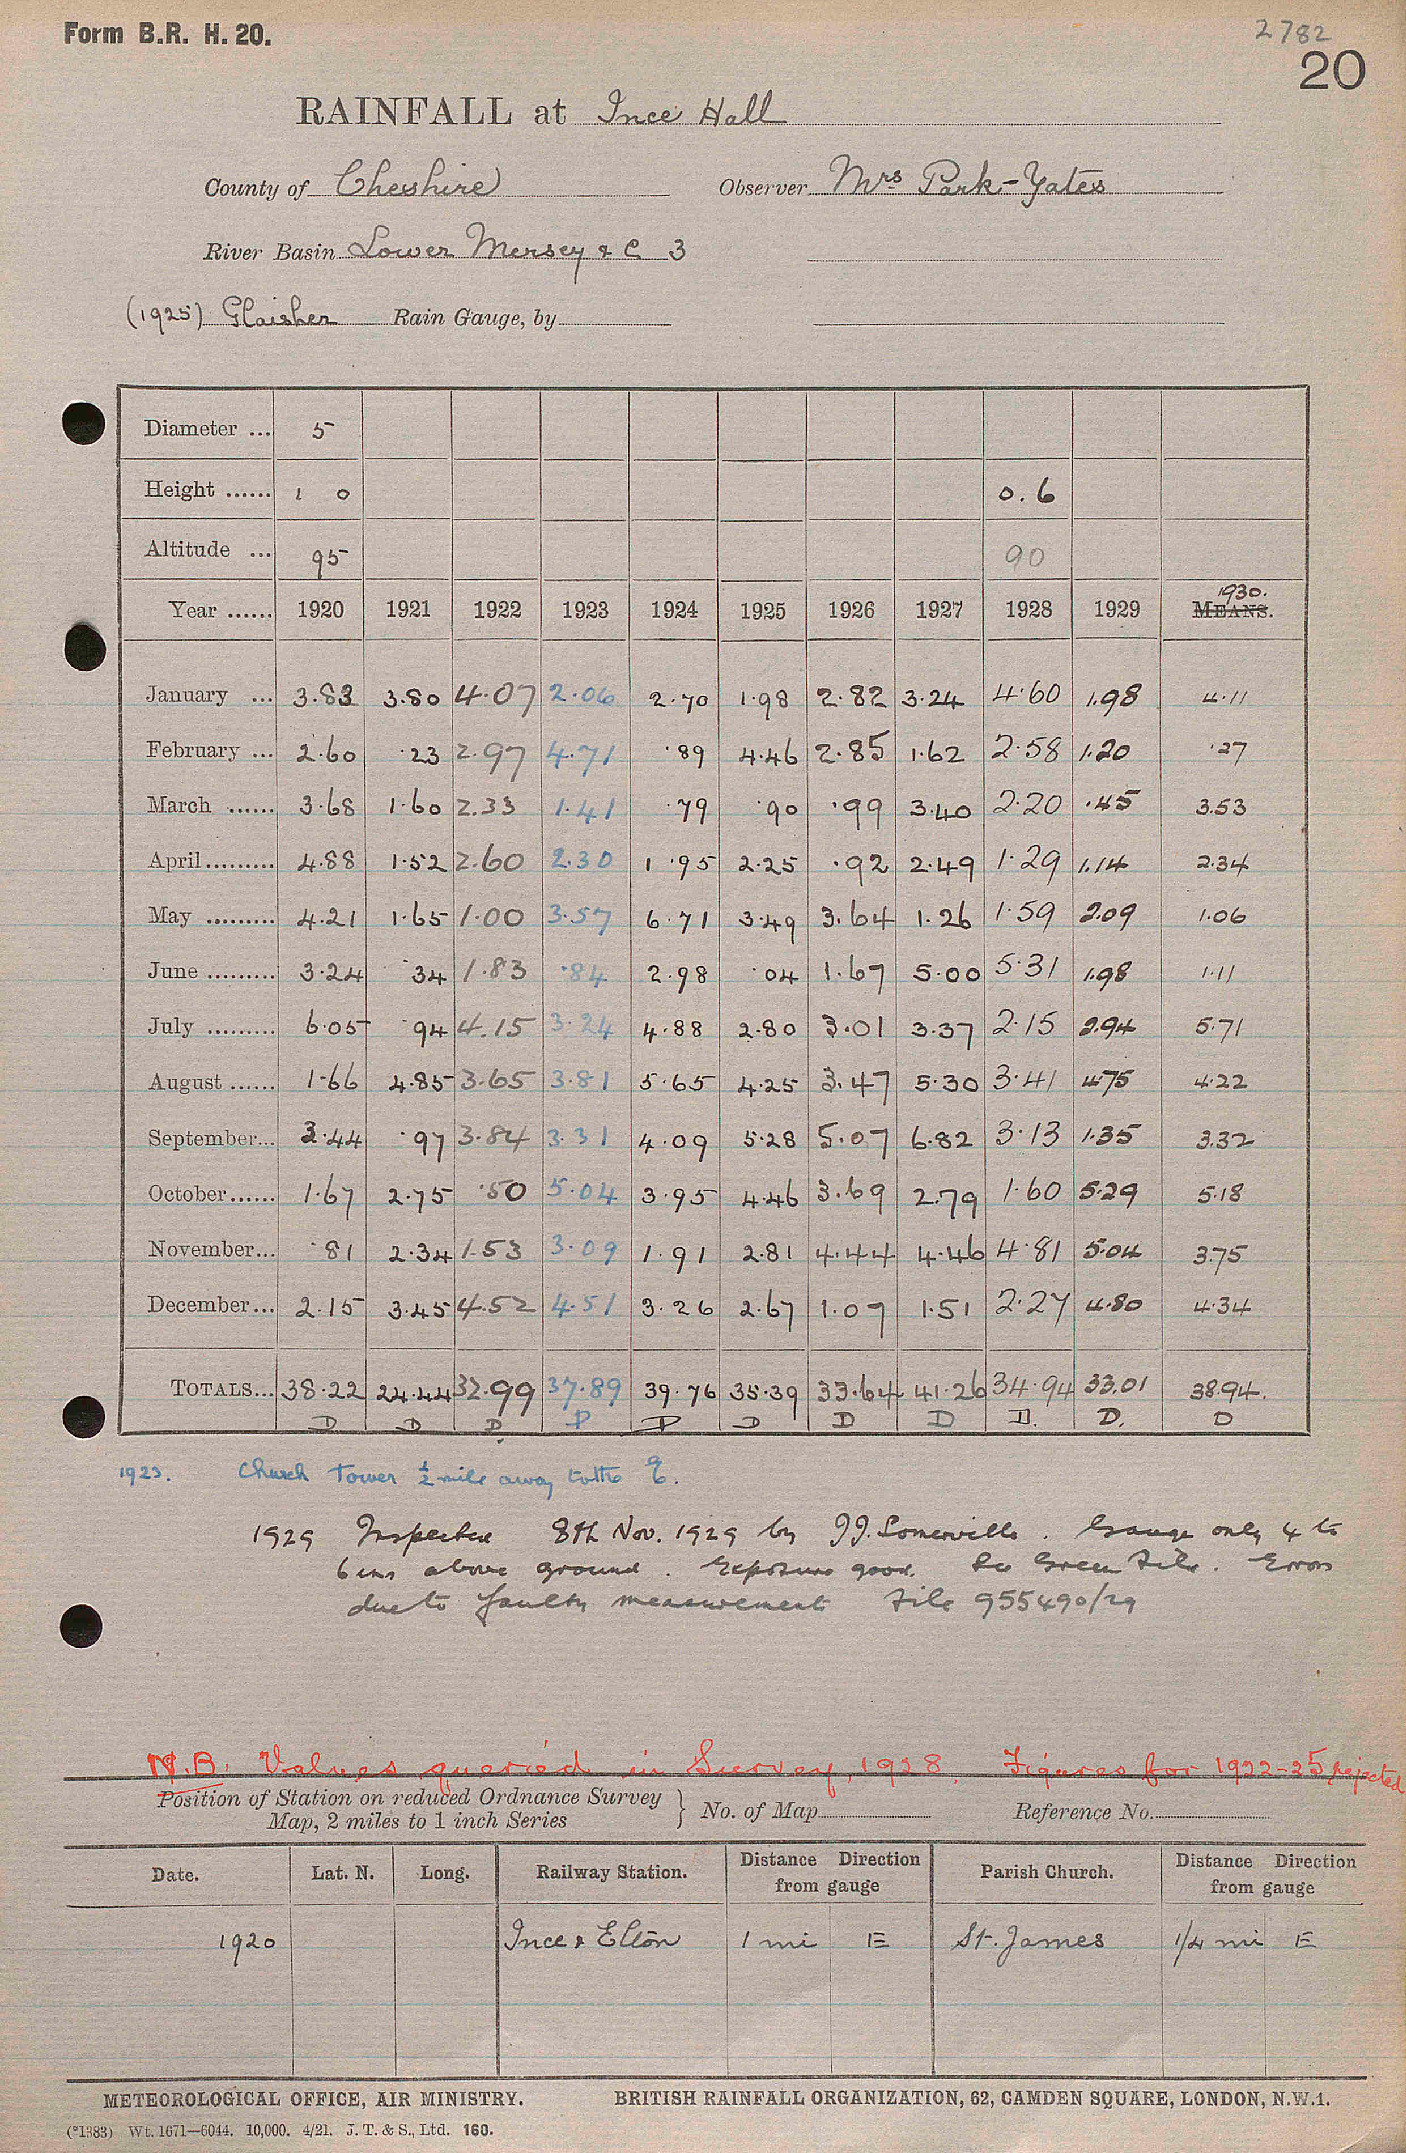 Form B.R. H. 20.
2782
20
RAINFALL at Ince Hall
County of Cheshire Observer Mrs Park-Yates
River Basin Lower Mersey & C 3
(1925) Glaisher Rain Gauge, by
Diameter ... 5
Height ...... 1 0 0.6
Altitude ... 95 90
1930.
Year ...... 1920 1921 1922 1923 1924 1925 1926 1927 1928 1929 MEANS.
January ... 3.83 3.80 4.07 2.06 2.70 1.98 2.82 3.24 4.60 1.98 4.11
February ... 2.60 .23 2.97 4.71 .89 4.46 2.85 1.62 2.58 1.20 .27
March ...... 3.68 1.60 2.33 1.41 .79 .90 .99 3.40 2.20 .45 3.53
April ......... 4.88 1.52 2.60 2.30 1.95 2.25 .92 2.49 1.29 1.14 2.34
May ......... 4.21 1.65 1.00 3.57 6.71 3.49 3.64 1.26 1.59 2.09 1.06
June ......... 3.24 .34 1.83 .84 2.98 .04 1.67 5.00 5.31 1.98 1.11
July ......... 6.05 .94 4.15 3.24 4.88 2.80 3.01 3.37 2.15 2.94 5.71
August ...... 1.66 4.85 3.65 3.81 5.65 4.25 3.47 5.30 3.41 4.75 4.22
September... 3.44 .97 3.84 3.31 4.09 5.28 5.07 6.82 3.13 1.35 3.32
October...... 1.67 2.75 .50 5.04 3.95 4.46 3.69 2.79 1.60 5.29 5.18
November... .81 2.34 1.53 3.09 1.91 2.81 4.44 4.46 4.81 5.04 3.75
December... 2.15 3.45 4.52 4.51 3.26 2.67 1.07 1.51 2.27 4.80 4.34
TOTALS... 38.22 24.44 32.99 37.89 39.76 35.39 33.64 41.26 34.94 33.01 38.94.
D D D. D D D D D D. D. D
1923. Church Tower ½ mile away to the E.
1929 Inspected 8th Nov. 1929 by J.J. Somerville. Gauge only 4 to
6 ins above ground. Exposure good. See Green File. Errors
due to faulty measurement File 955490/29
N.B. Values queried in Survey, 1928. Figures for 1922-25 rejected
Position of Station on reduced Ordnance Survey
Map, 2 miles to 1 inch Series } No. of Map Reference No.
Date. Lat. N. Long. Railway Station. Distance Direction from gauge Parish Church. Distance Direction from gauge
1920 Ince & Elton 1 mi E St. James 1/4 mi E
METEOROLOGICAL OFFICE, AIR MINISTRY. BRITISH RAINFALL ORGANIZATION, 62, CAMDEN SQUARE, LONDON, N.W.1.
(*1383) Wt. 1671—6044. 10,000. 4/21. J. T. & S., Ltd. 160.